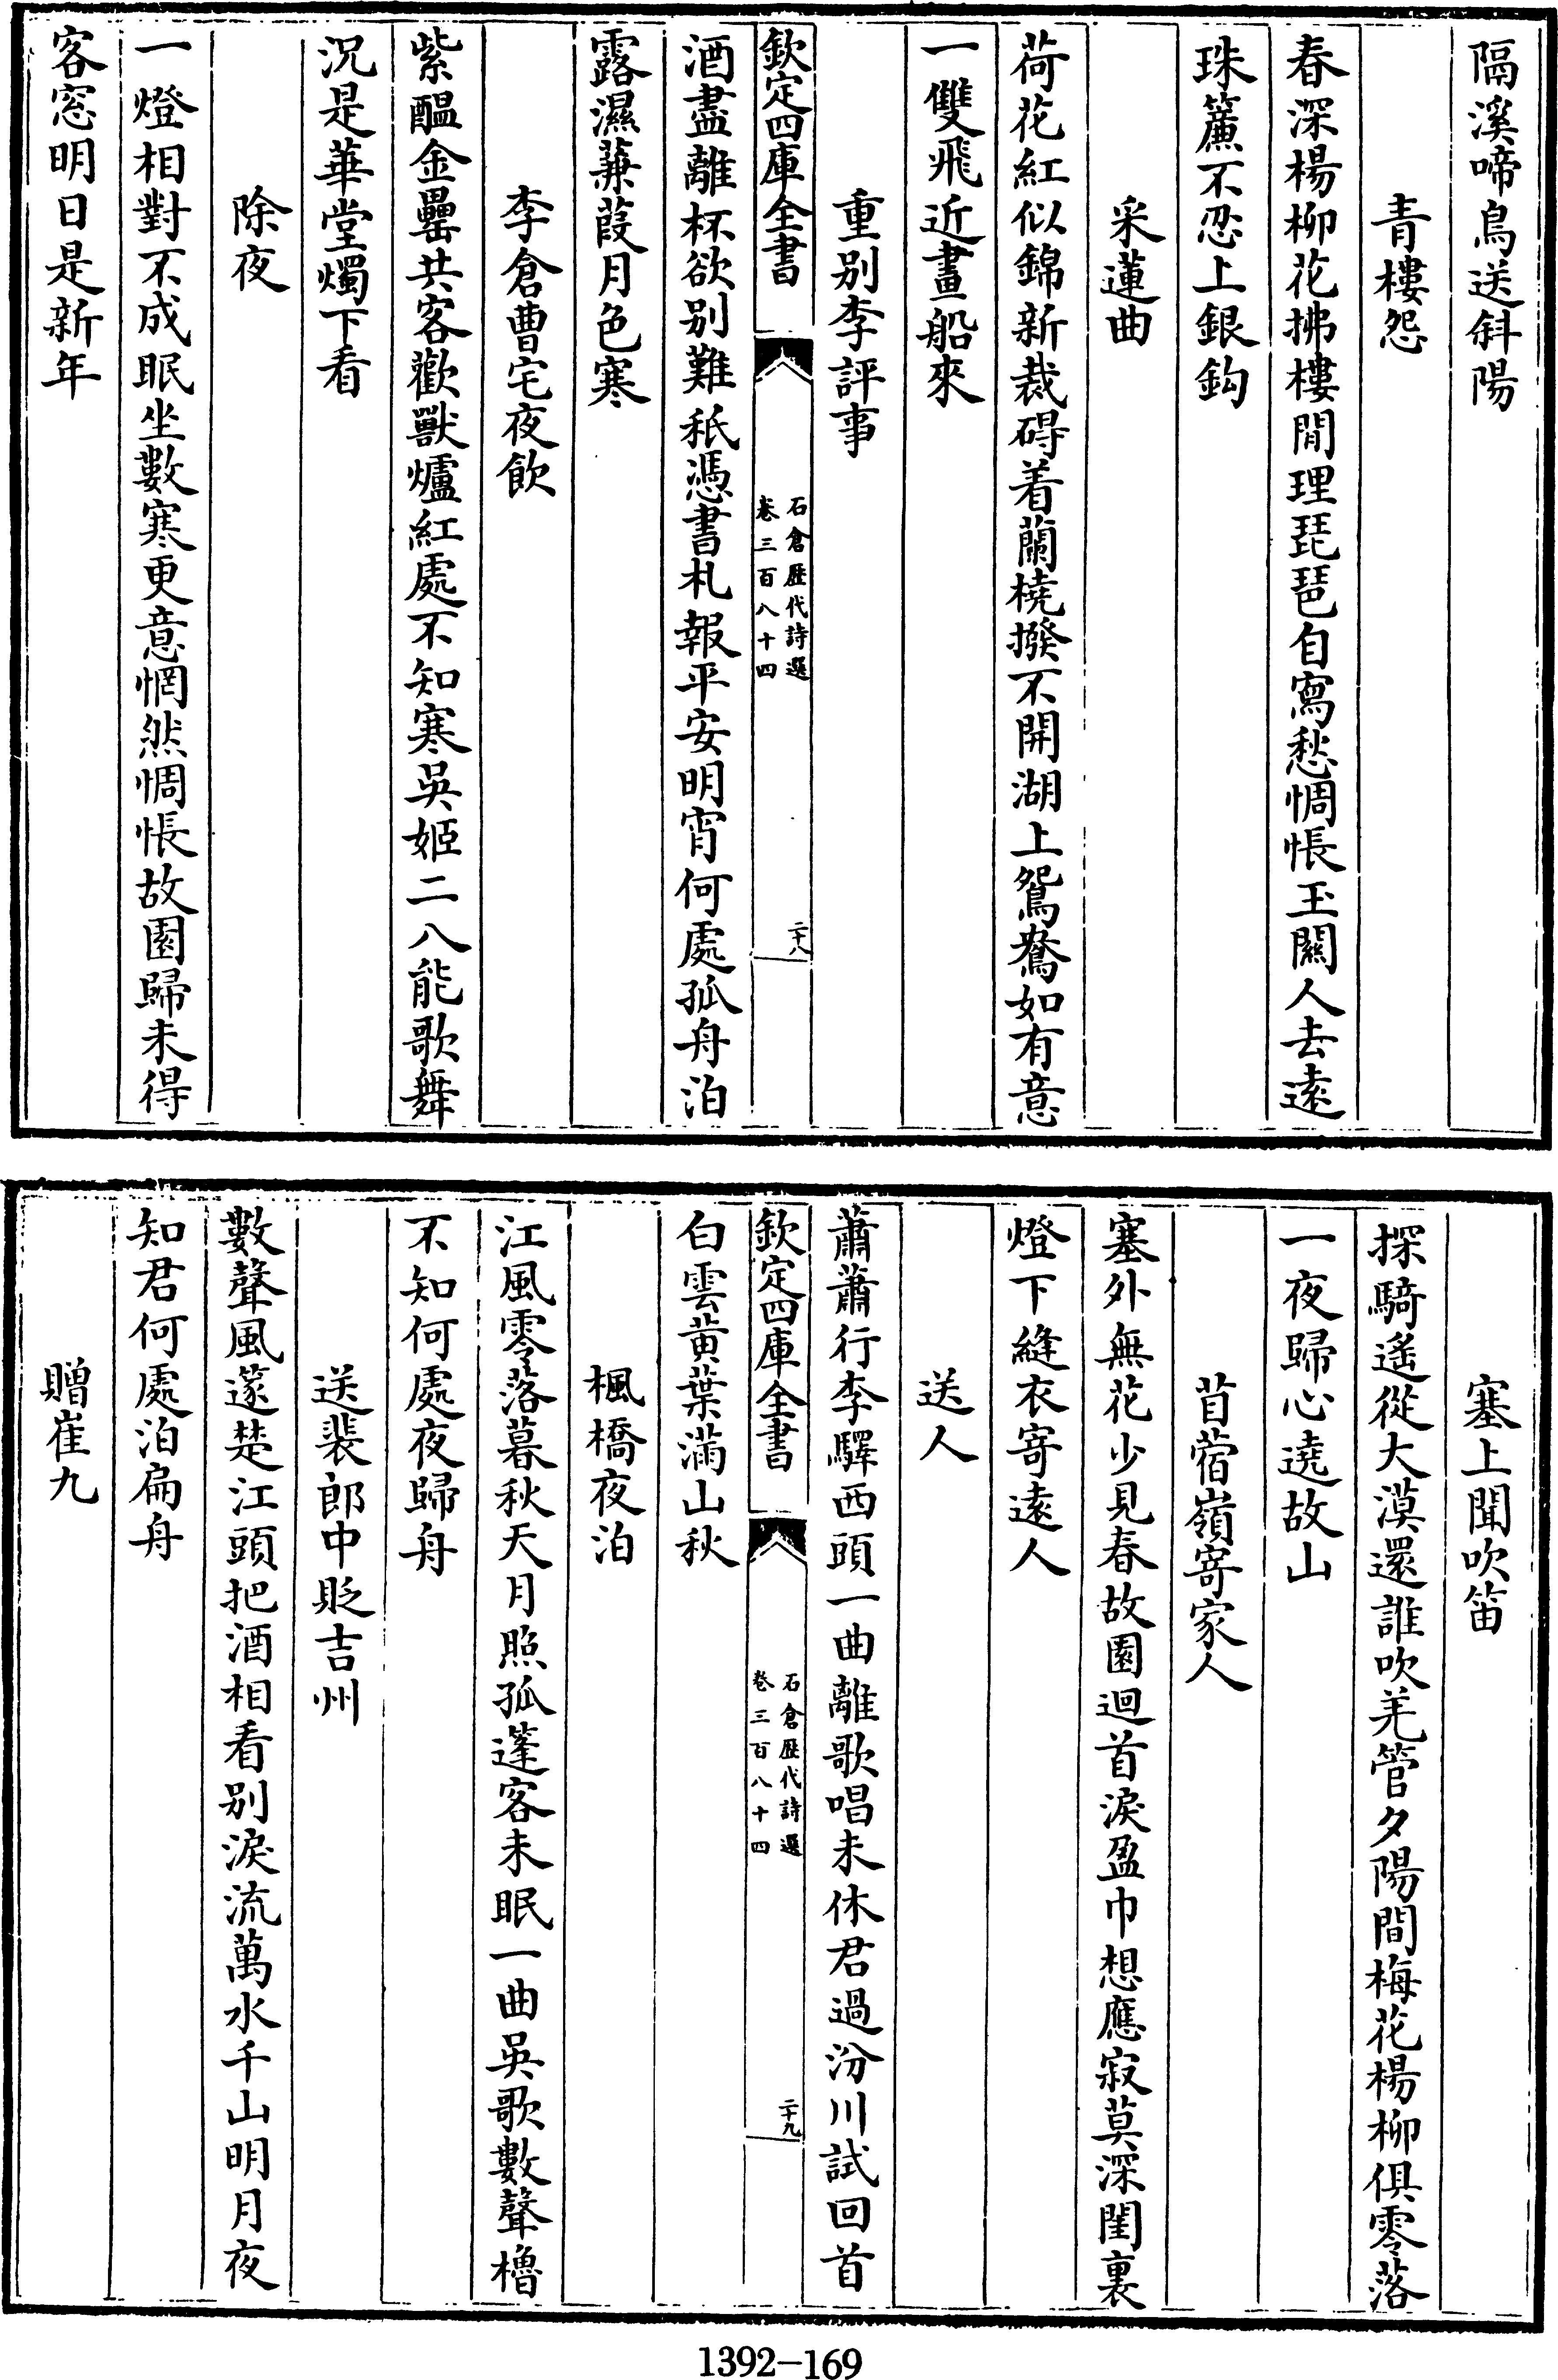 隔溪啼鳥送斜陽
青樓怨
春深楊柳花拂樓閒理琵琶自寫愁惆悵玉關人去遠
珠簾不忍上銀鈎
采蓮曲
荷花紅似錦新裁碍着蘭橈撥不開湖上鴛鴦如有意
一雙飛近畫船來
重别李評事
欽定四庫全書
石倉歷代詩選
卷三百八十四
二十八
酒盡離杯欲别難秖憑書札報平安明宵何處孤舟泊
露濕蒹葭月色寒
李倉曹宅夜飲
紫醖金罍共客歡獸爐紅處不知寒吳姬二八能歌舞
況是華堂燭下看
除夜
一燈相對不成眠坐數寒更意惘然惆悵故園歸未得
客窓明日是新年
塞上聞吹笛
探騎遙從大漠還誰吹羌管夕陽間梅花楊柳俱零落
一夜歸心遶故山
苜蓿嶺寄家人
塞外無花少見春故園迴首淚盈巾想應寂莫深閨裏
燈下縫衣寄遠人
送人
蕭蕭行李驛西頭一曲離歌唱未休君過汾川試回首
欽定四庫全書
石倉歷代詩選
卷三百八十四
二十九
白雲黄葉滿山秋
楓橋夜泊
江風零落暮秋天月照孤篷客未眠一曲吳歌數聲櫓
不知何處夜歸舟
送裴郎中貶吉州
數聲風篴楚江頭把酒相看别淚流萬水千山明月夜
知君何處泊扁舟
贈崔九
1392-169